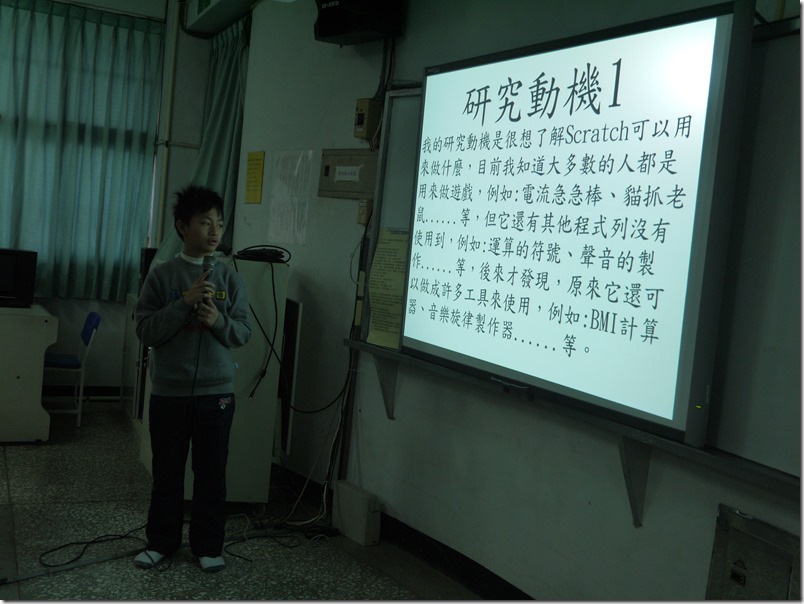 研究動機1
我的研究動機是很想了解Scratch可以用
來做什麼，目前我知道大多數的人都是
用來做遊戲，例如:電流急急棒、貓抓老
鼠......等，但它還有其他程式列沒有
使用到，例如:運算的符號、聲音的製
作......等，後來才發現，原來它還可
以做成許多工具來使用，例如:BMI計算
器、音樂旋律製作器......等。